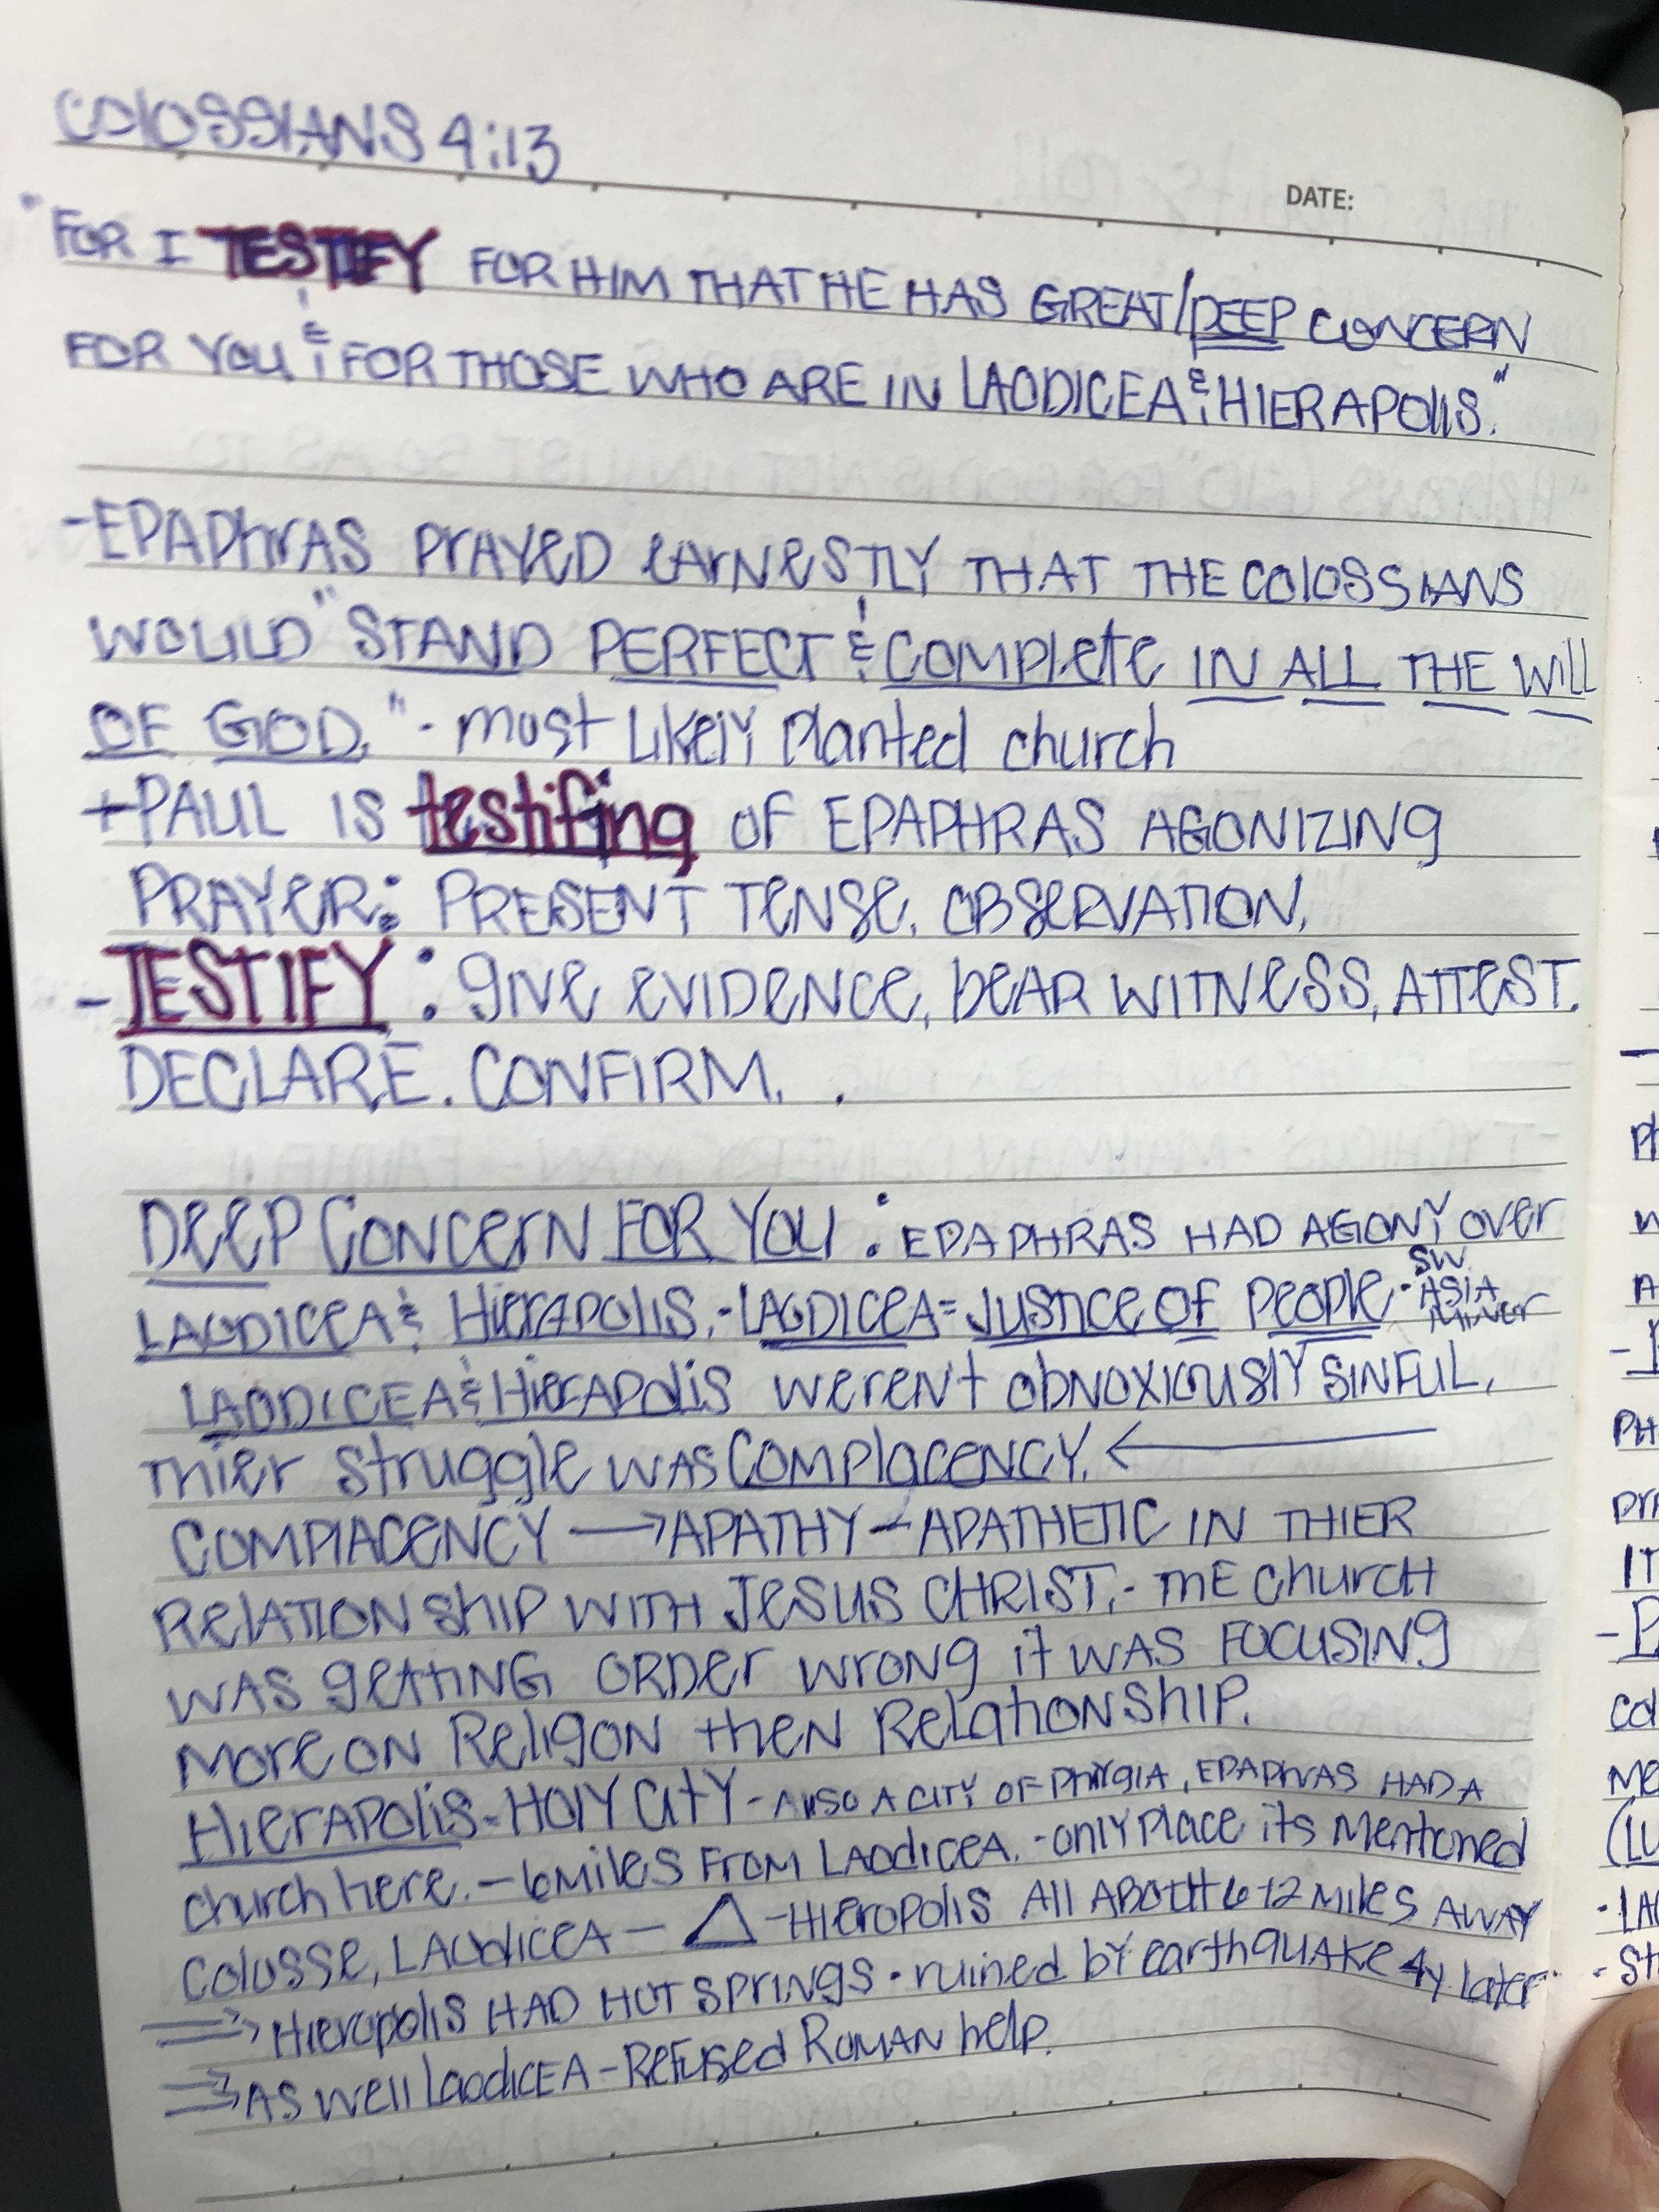 COLOSSIANS 4:13
DATE:
"FOR I TESTIFY FOR HIM THAT HE HAS GREAT/DEEP CONCERN
FOR YOU & FOR THOSE WHO ARE IN LAODICEA & HIERAPOLIS."
-EPAPHRAS PRAYED EARNESTLY THAT THE COLOSSIANS
WOULD "STAND PERFECT & COMPLETE IN ALL THE WILL
OF GOD." - most LIKELY Planted church
+PAUL IS testifing OF EPAPHRAS AGONIZING
PRAYER: PRESENT TENSE. OBSERVATION.
- TESTIFY: GIVE EVIDENCE, BEAR WITNESS, ATTEST.
DECLARE. CONFIRM. .
DEEP CONCERN FOR YOU: EPAPHRAS HAD AGONY OVER
LAODICEA & HierAPOLIS. - LAODICEA = JUSTICE OF People - SW ASIA Minor
LAODICEA & HierAPOLIS weren't obnoxiously SINFUL.
THIER struggle WAS COMPlACENCY. ←
COMPlACENCY → APATHY - APATHETIC IN THIER
RELATIONSHIP WITH JESUS CHRIST. - THE CHURCH
WAS GETTING ORDER WRONG it WAS FOCUSING
MORE ON Religon then RELATIONSHIP.
HIERAPOLIS - HOLY CITY - ALSO A CITY OF PHRYGIA, EPAPHRAS HAD A
church here. - 6 MILES FROM LAODICEA. - ONLY PLACE its Mentioned
Colosse, LAODICEA - △ - HIEROPOLIS All ABOTH 6-12 MILES AWAY
⇒ HIEROPOLIS HAD HOT SPRINGS • ruined by EARTHQUAKE 4y later
⇒ AS WELL LAODICEA - REFUSED ROMAN help.